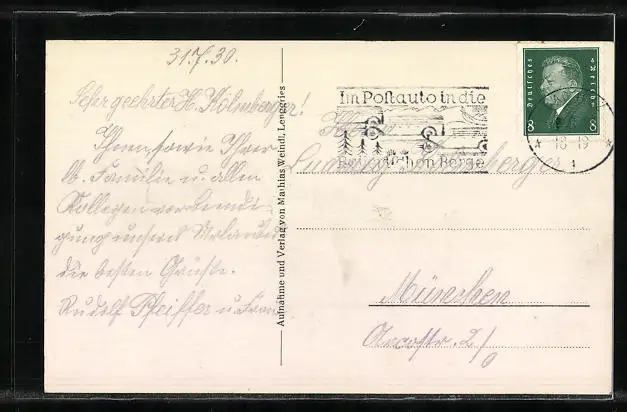 31.7.30.
Sehr geehrter H. Kölmberger!
Ihnen sowie Ihrer
lb. Familie u. allen
Kollegen vor beendi-
gung unseres Urlaubes
die besten Grüße.
Rudolf Pfeiffer u. Frau
Aufnahme und Verlag von Mathias Weindl, Lenggries
Im Postauto in die
Bayrischen Berge
Deutsches Reich
8 8
18-19
1
Herrn
Ludwig
München